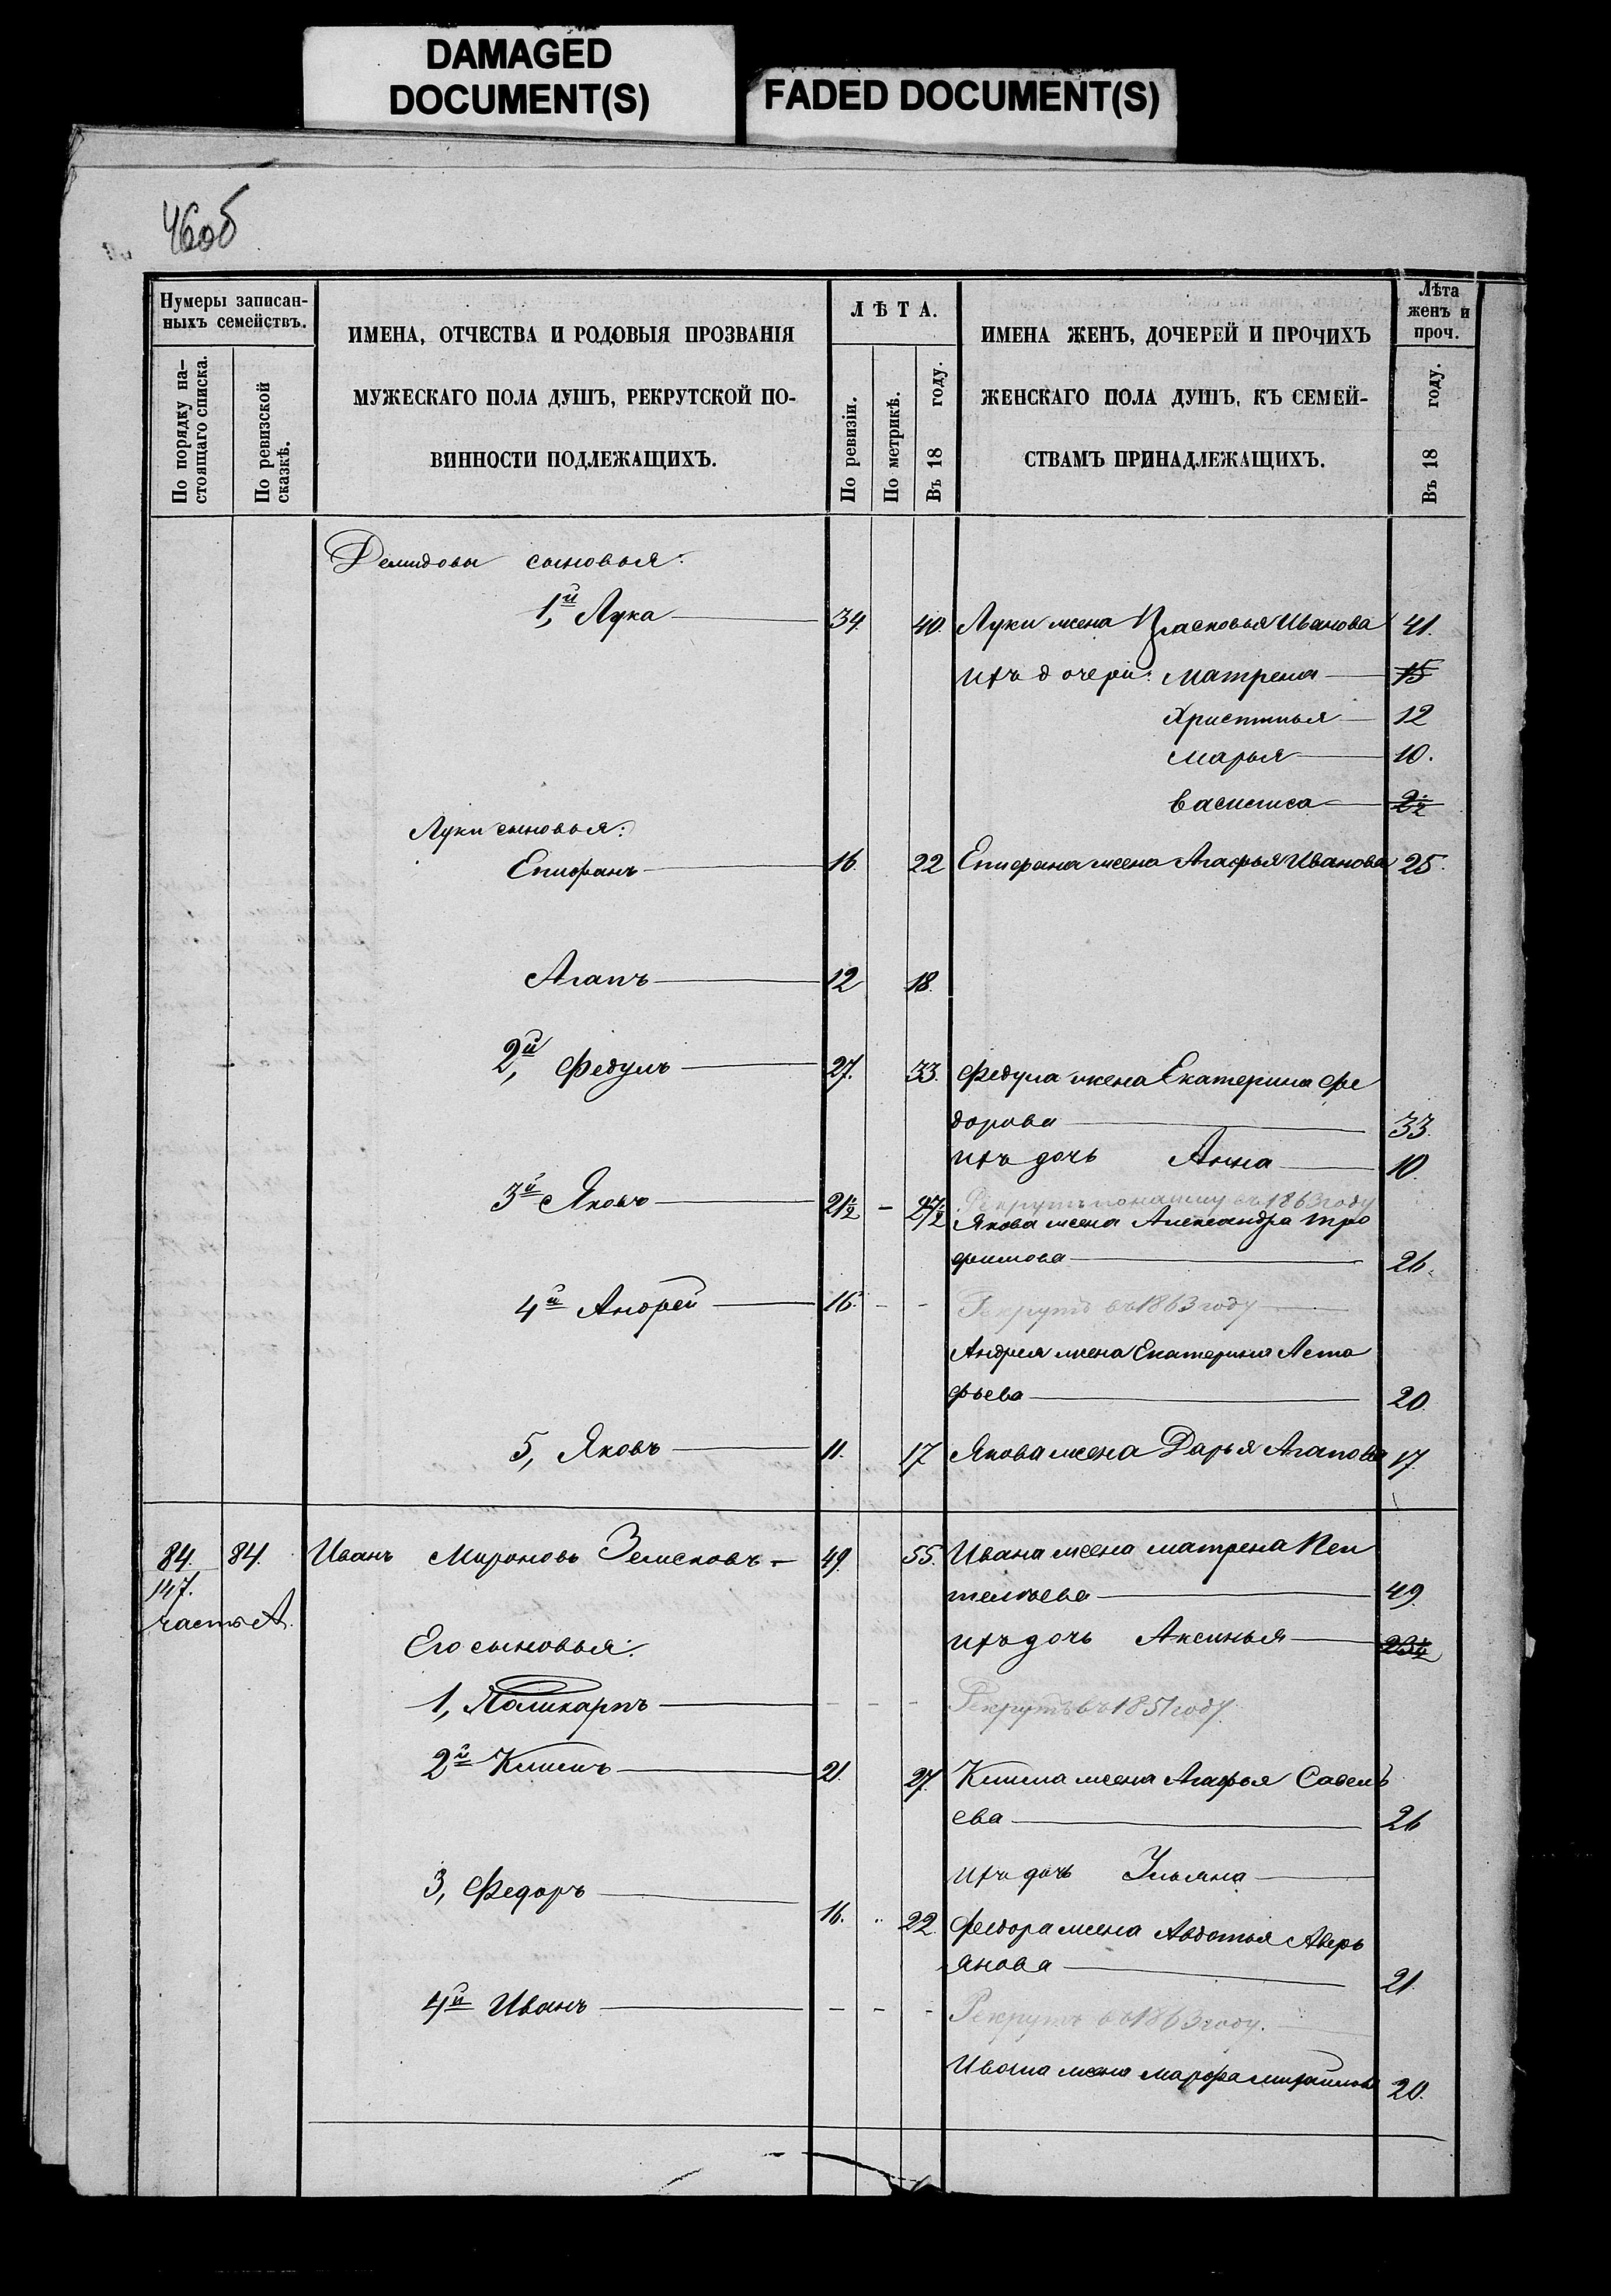 DAMAGED
DOCUMENT(S)
FADED DOCUMENT(S)
46об
Нумеры записан-
ныхъ семействъ.
По порядку на-
стоящаго списка.
По ревизской
сказкѣ.
ИМЕНА, ОТЧЕСТВА И РОДОВЫЯ ПРОЗВАНІЯ
МУЖЕСКАГО ПОЛА ДУШЪ, РЕКРУТСКОЙ ПО-
ВИННОСТИ ПОДЛЕЖАЩИХЪ.
ЛѢТА.
По ревизіи.
По метрикѣ.
Въ 18 году.
ИМЕНА ЖЕНЪ, ДОЧЕРЕЙ И ПРОЧИХЪ
ЖЕНСКАГО ПОЛА ДУШЪ, КЪ СЕМЕЙ-
СТВАМЪ ПРИНАДЛЕЖАЩИХЪ.
Лѣта
женъ и
проч.
Въ 18 году.
Демидовы сыновья:
1й, Лука 34. 40. Луки жена Прасковья Иванова 41.
ихъ дочери: Матрена 15
Христинья 12
Марья 10.
Василиса 2½
Луки сыновья:
Епифанъ 16. 22 Епифана жена Агафья Иванова 25.
Агапъ 12 18.
2й, Федулъ 27. 33. Федула жена Екатерина Фе
дорова 33.
ихъ дочь Анна 10
3й Яковъ 21½ - 27½ Рекрутъ по найму въ 1863 году
Якова жена Александра Тро
фимова 26.
4й Андрей 16. - - Рекрутъ въ 1863 году
Андрея жена Екатерина Аста
фьева 20.
5, Яковъ 11. 17 Якова жена Дарья Агапова 17.
84. 84. Иванъ Мироновъ Земсковъ - 49. 55. Ивана жена Матрена Пен
147. телѣева 49.
часть А.
Его сыновья: ихъ дочь Аксинья
1, Поликарпъ - - - Рекрутъ въ 1851 году.
2й Климъ 21. 27. Клима жена Агафья Савель
ева 26
ихъ дочь Ульяна
3, Федоръ 16. 22. Федора жена Авдотья Аверь
янова 21.
4й Иванъ - - - Рекрутъ въ 1863 году.
Ивана жена Марфа Михайлова 20.